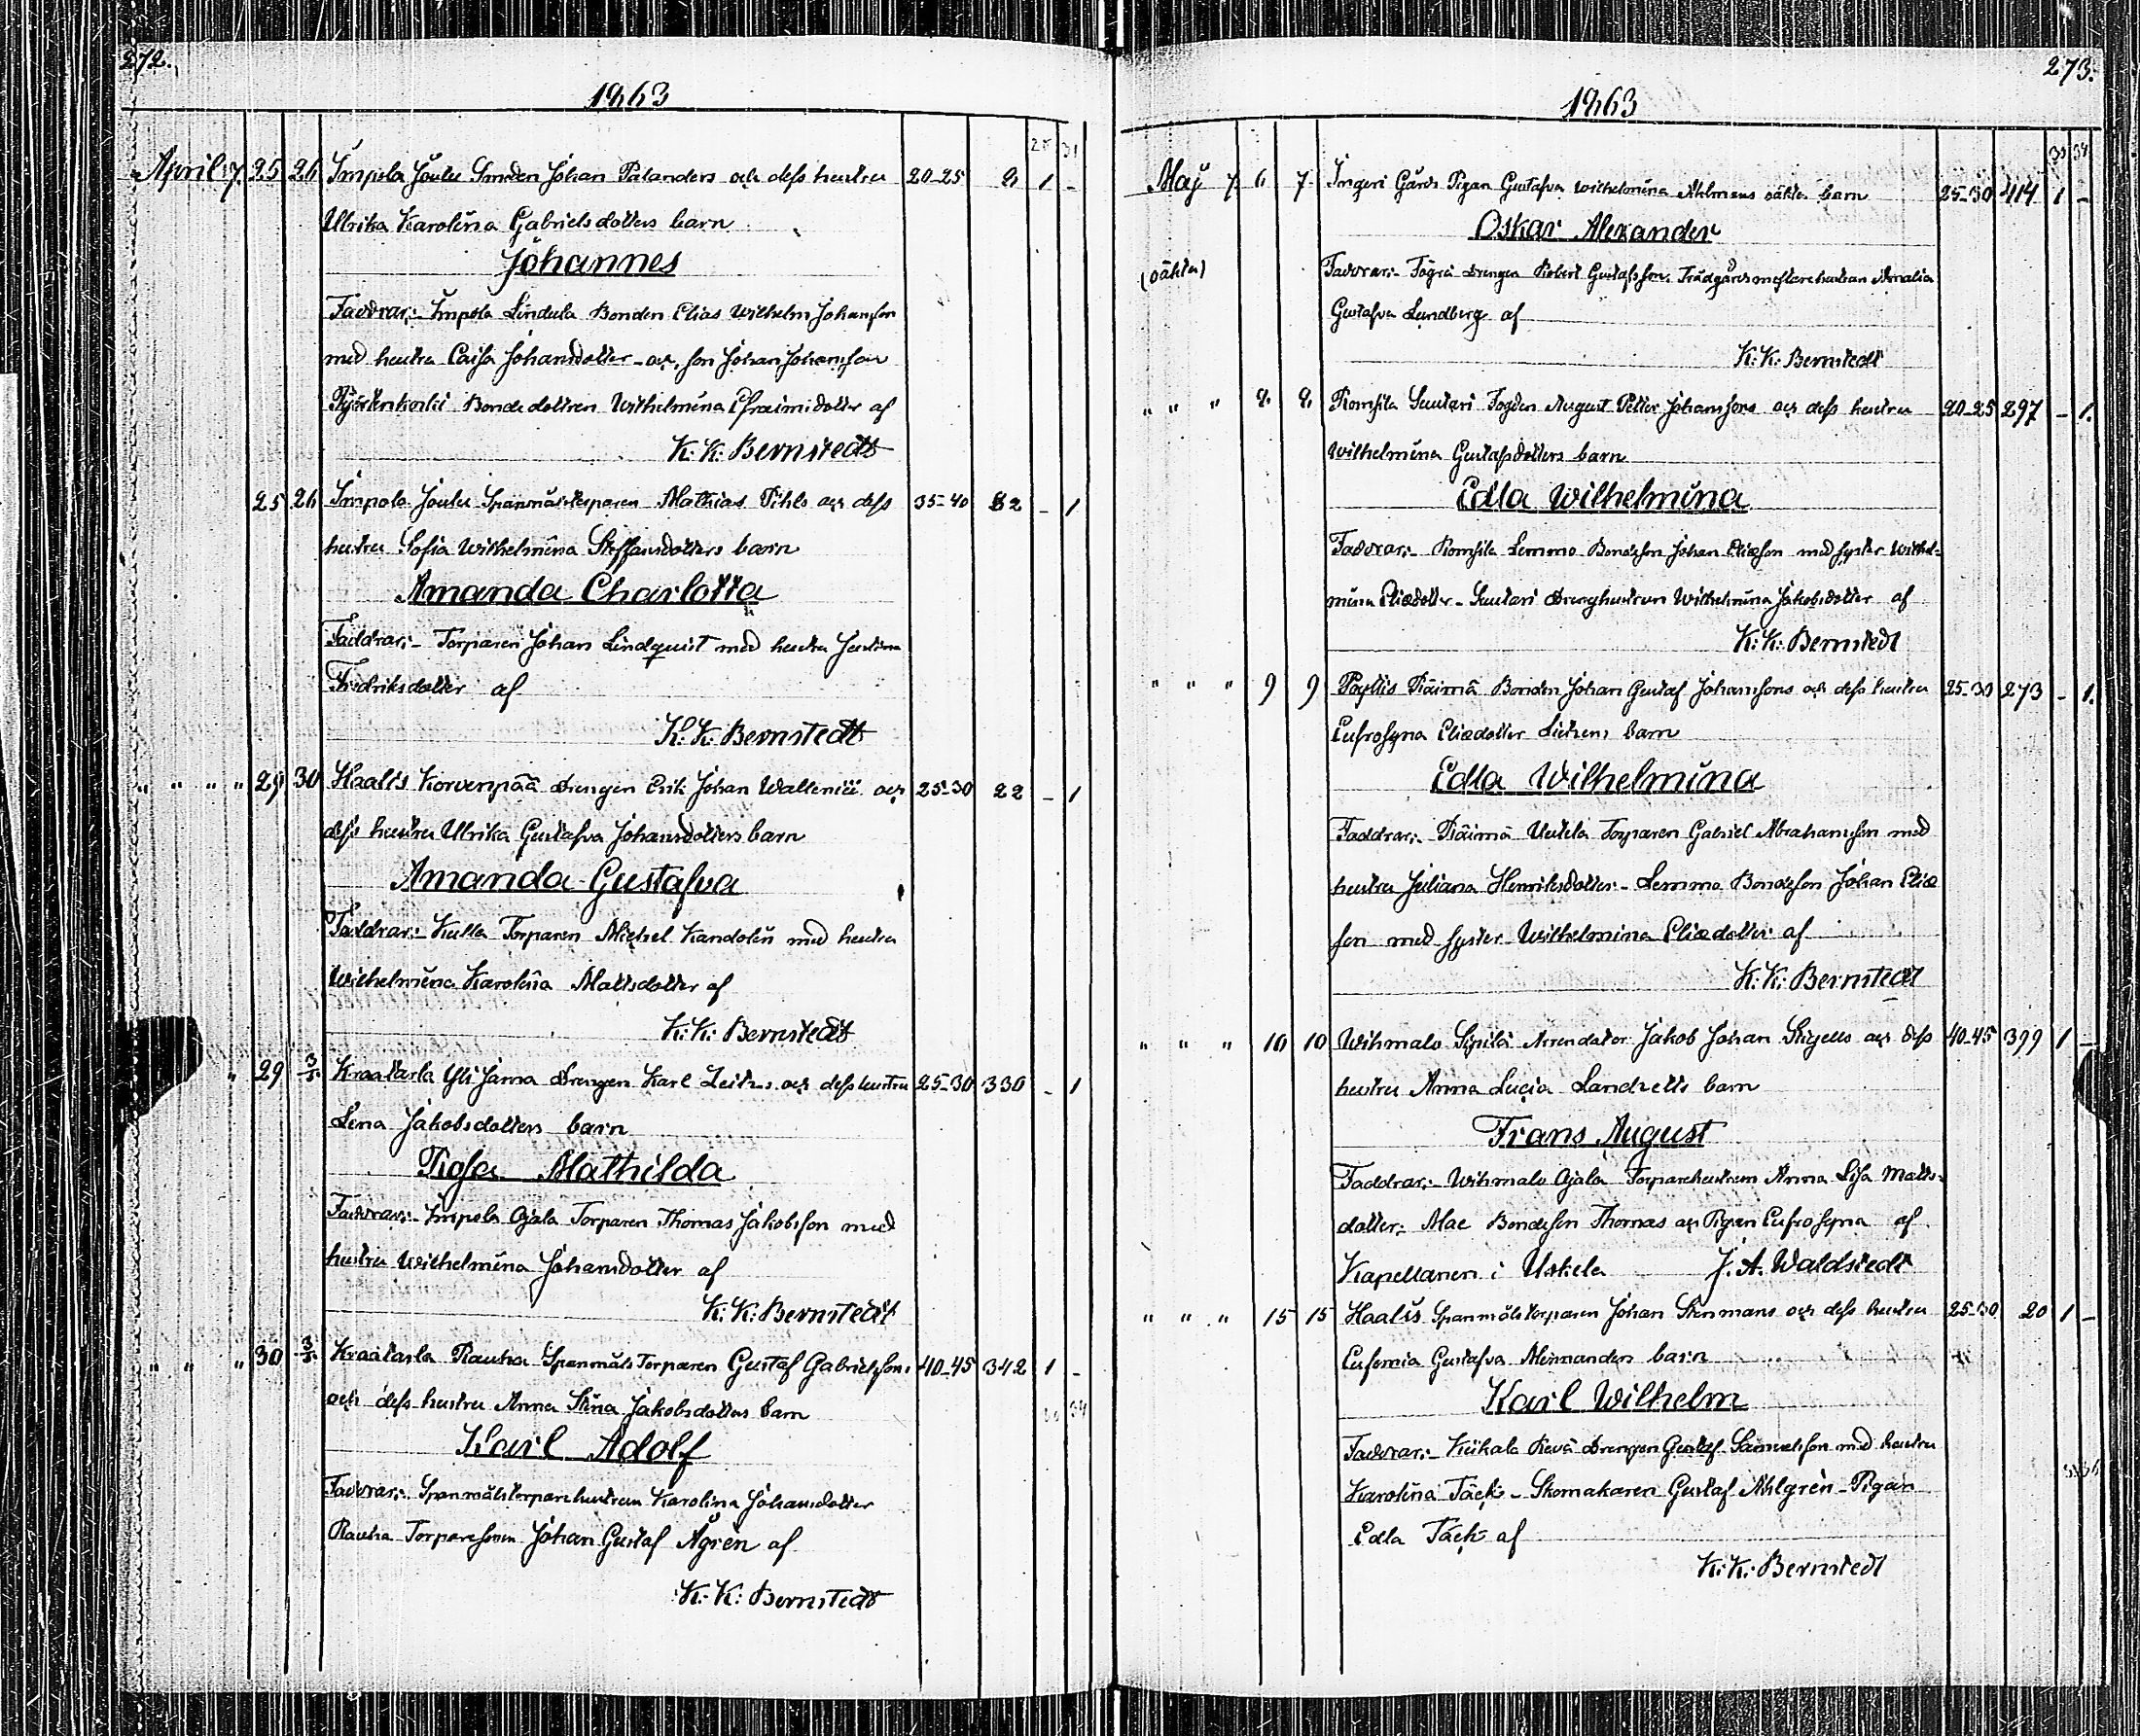 272.
1863
April 17. 25 26 Impola Joulu Smeden Johan Palanders och dess hustru 20-25 8 1 -
Ulrika Karolina Gabrielsdotters barn
Johannes
Faddrar:- Impola Lindula Bonden Elias Wilhelm Johansson
med hustru Caisa Johansdotter - och son Johan Johansson
Bondedottren Wilhelmina Efraimsdotter af
K. K. Bernstedt
25 26 Impola Joulu Spanmålstorparen Mathias Pihls och dess 35-40 82 - 1
hustru Sofia Wilhelmina Steffansdotters barn
Amanda Charlotta
Faddrar:- Torparen Johan Lindquist med hustru Justina
Fredriksdotter af
K. K. Bernstedt
" " " " 29 30 Haalis Korvenpää Drengen Erik Johan Wallenii och 25-30 22 - 1
dess hustru Ulrika Gustafva Johansdotters barn
Amanda Gustafva
Faddrar:- Kulla Torparen Michel Kandolin med hustru
Wilhelmina Karolina Mattsdotter af
K: K: Bernstedt
" 29 3/5. Kraatarla Yli Jama Drengen Karl och dess hustru 25-30 330 - 1
Lena Jakobsdotters barn
Rosa Mathilda
Faddrar:- Impola Ojala Torparen Thomas Jakobsson med
hustru Wilhelmina Johansdotter af
K: K: Bernstedt
" " " 30 3/5. Kraatarla Rauha Spanmåls Torparen Gustaf Gabrielssons 40-45 342 1 -
och dess hustru Anna Stina Jakobsdotters barn
Karl Adolf
Faddrar:- Spanmålstorparehustrun Karolina Johansdotter
Rauha Torparesonen Johan Gustaf Ågrèn af
K. K: Bernstedt
273.
1863
Maj 7. 6 7. Ingeri Gårds Pigan Gustafva Wilhelmina Ahlmans oäkta barn 25-30 414 1 -
Oskar Alexander
(oäkta) Faddrar:- Drengen Robert Gustafsson. Trädgårdsmästarehustrun Amalia
Gustafva Lundberg af
K: K: Bernstedt
" " " 8. 8. Romsila Suutari Fogden August Petter Johanssons och dess hustru 20-25 297 - 1.
Wilhelmina Gustafsdotters barn
Edla Wilhelmina
Faddrar:- Romsila Lemmo Bondeson Johan Eliæson med syster Wilhel-
mina Eliædotter - Suutari Drenghustrun Wilhelmina Jakobsdotter af
K: K: Bernstedt
" " " 9 9 Räimä Bonden Johan Gustaf Johanssons och dess hustru 25-30 273 - 1.
Eufrosyna Eliædotter barn
Edla Wilhelmina
Faddrar:- Räimä Uutela Torparen Gabriel Abrahamsson med
hustru Juliana Henriksdotter - Lemmo Bondeson Johan Eliæ
son med syster Wilhelmina Eliædotter af
K: K: Bernstedt
" " " 10 10 Wihmalo Sipilä Arrendator Jakob Johan och dess 40-45 399 1 -
hustru Anna Lucia Landzetts barn
Frans August
Faddrar:- Wihmalo Ojala Torparehustrun Anna Lisa Matts-
dotter: Mac Bondeson Thomas och Pigan Eufrosyna af
Kapellanen i Uskela J. A. Waldstedt
" " " 15 15 Haalis Spanmålstorparen Johan Stenmans och dess hustru 25-30 20 1 -
Eufemia Gustafva Meinanders barn
Karl Wilhelm
Faddrar:- Kiikala Drengen Gustaf Samuelsson med hustru
Karolina Täck - Skomakaren Gustaf Ahlgrèn - Pigan
Edla Täck af
K: K: Bernstedt